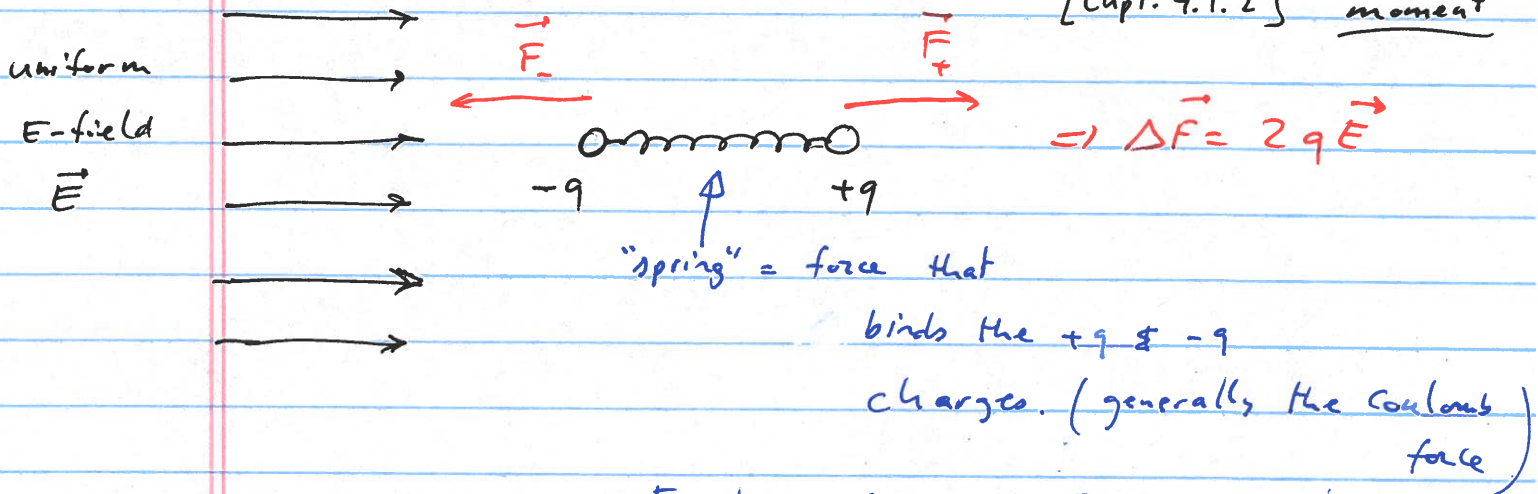 [Cupt. 4.1.2] moment
uniform
E-field
E⃗
F⃗₋
F⃗₊
-q
+q
=> ΔF⃗ = 2qE⃗
"spring" = force that
binds the +q & -q
charges. (generally the Coulomb
force)